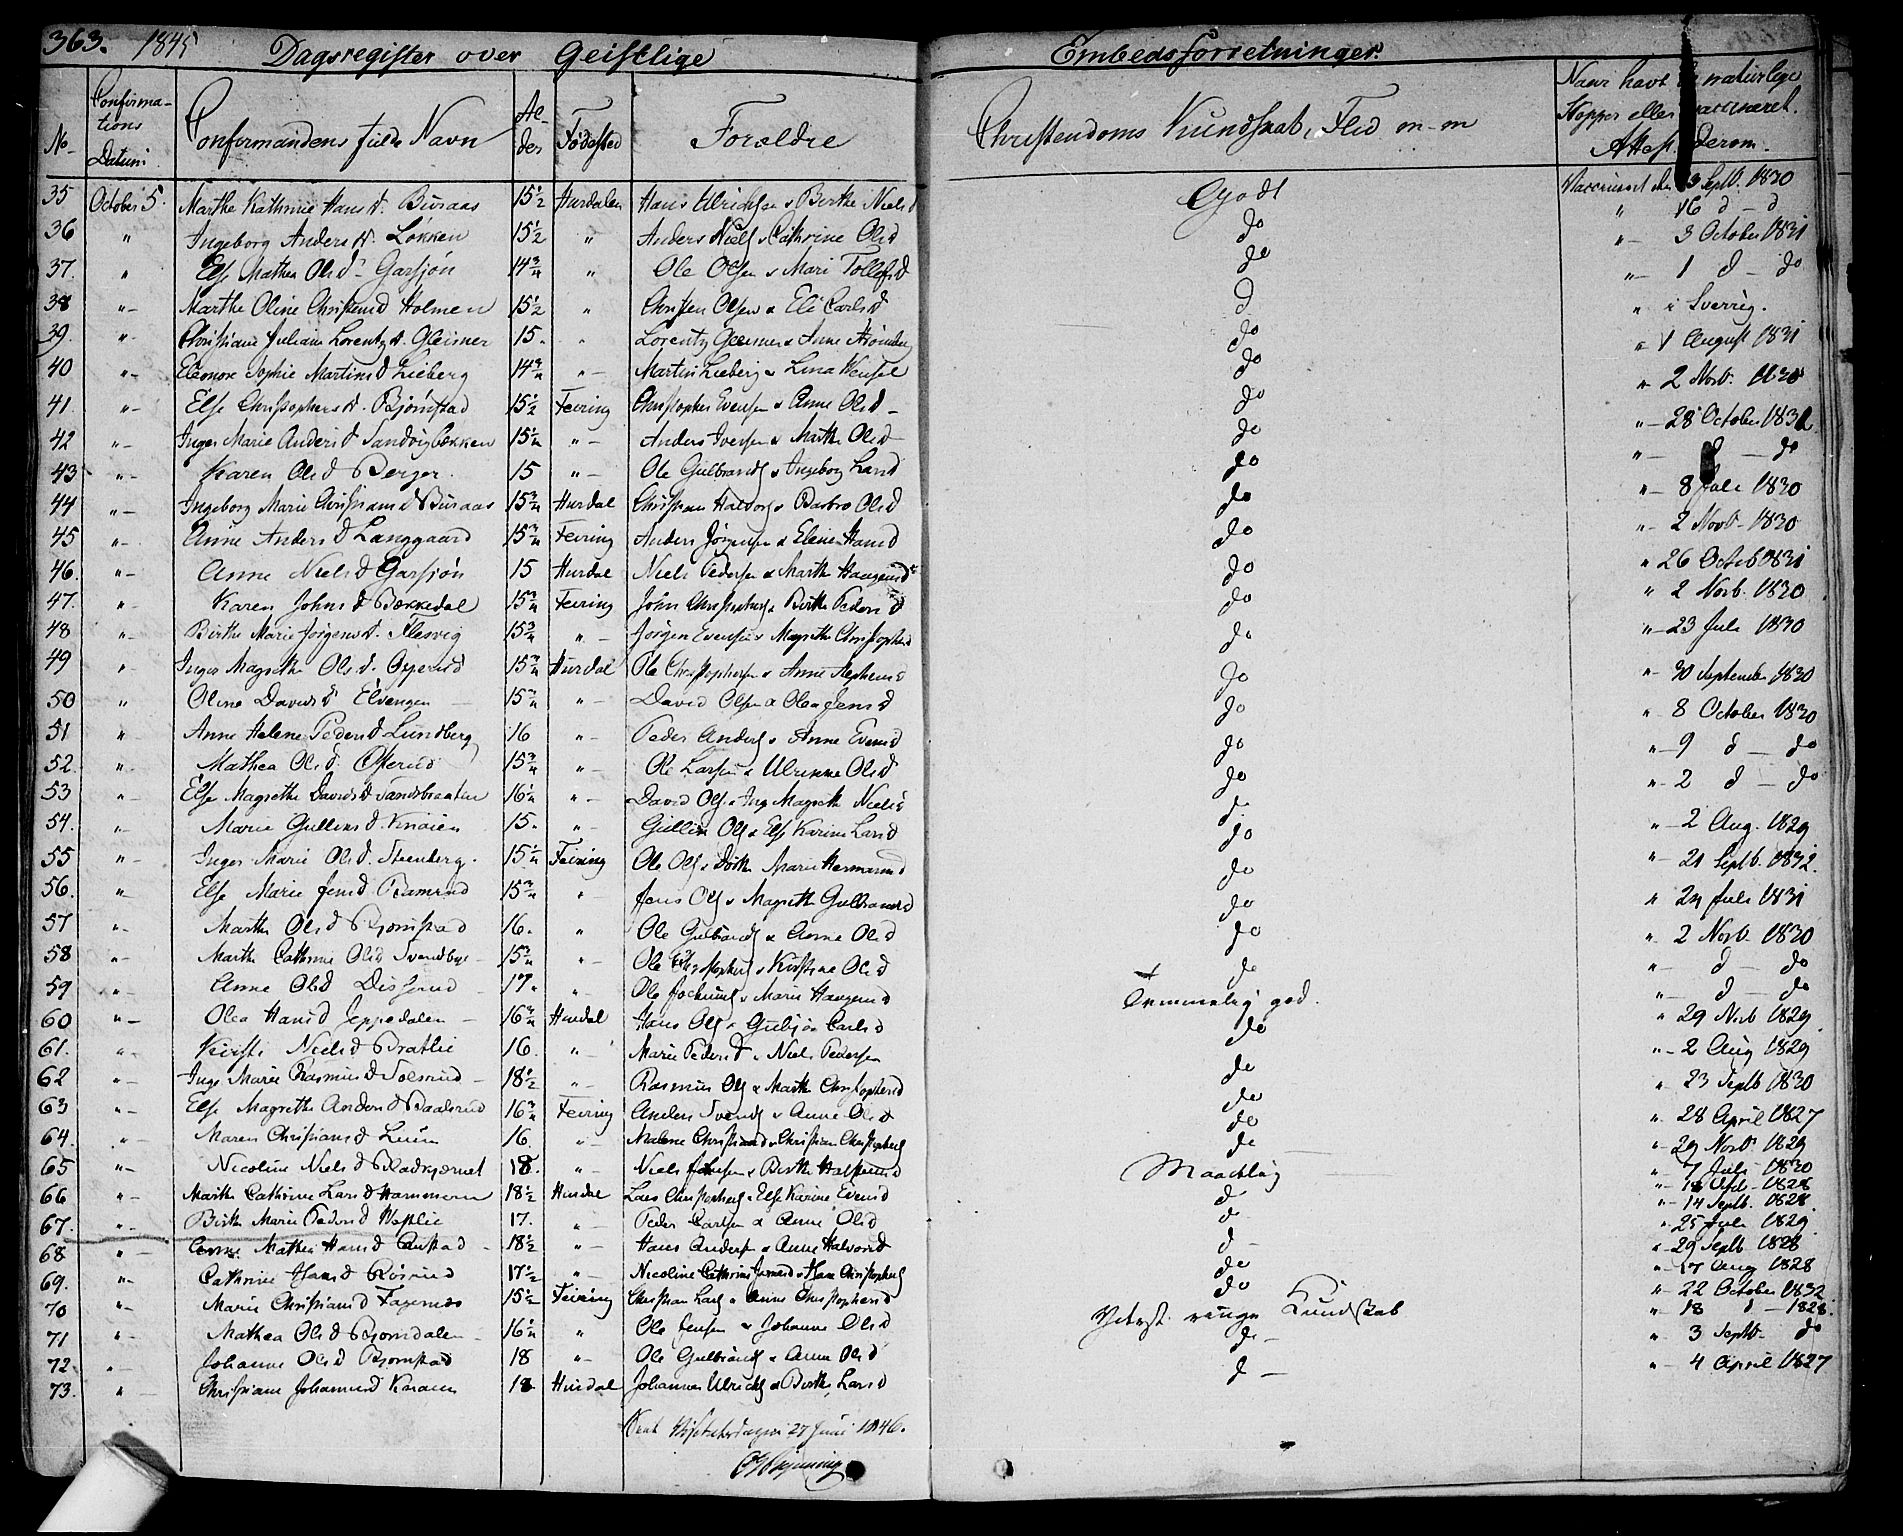 363. 1845 Dagsregister over Geistlige Embedsforretninger.
No Confirmations Datum Confirmandens fulde Navn Alder Fødested Forældre Christendoms Kundskab, Flid m-m Naar havt de naturlige Kopper eller vaccineret. Attest derom.
35 October 5. Marthe Kathrine Hans d. Buraas 15½ Hurdalen Hans Ulrichsen & Birthe Niels d Godt Vaccineret den 3 Septb. 1830
36 " Ingeborg Anders d. Løkken 15½ " Anders Niels & Cathrine Ols d do " 16 d - d
37. " Else Mathea Ols d. Garsjøn 14¾ " Ole Olsen & Mari Tollefs d do " - 3 October 1831
38 " - Marthe Oline Christens d Holmen 15½ " Christen Olsen & Eli Carls d d " - 1 d - do
39. " - Christiane Juliane Lorentz d. Gleimer 15. " Lorentz Gleimer & Anne do " i Sverrig.
40 " - Eleonore Sophie Martins d Lieberg 14¾ " - Martin Lieberg & Lina do " 1 August 1831
41. " - Else Christophers d. Bjørnstad 15½ Feiring Christopher Evensen & Anne Ols d - do " 2 Novb. 1830
42 " - Inger Marie Anders d Sandvigbækken 15¼ " - Anders Iversen & Marthe Ols d do " - 28 October 1831
43 " - Karen Ols d Berger. 15 " - Ole Gulbrands & Ingeborg Lars d do " - d - do
44 " - Ingeborg Marie Christians d Buraas 15¾ Hurdal Christian Halvors & Barbro Ols d do " - 8 Juli 1830
45 " - Anne Anders d Langgaard 15¾ Feiring Anders Jørgensen & Elene Hans d do " - 2 Novb - 1830
46. " - Anne Niels d Garsjøn 15 Hurdal Niels Pedersen & Marthe Haagens d do " 26 Octob 1831
47. " Karen Johns d Bækkedal 15¾ Feiring John Christophers & Birthe Peders d do " 2 Novb. 1830
48 " Birthe Marie Jørgens d. Flesvig 15¾ " - Jørgen Evensen & Magrethe Christophers d do " - 23 Juli 1830
49 " Inger Magrethe Ols d. 15¾ Hurdal Ole Christophersen & Anne Stephens d do " - 30 September 1830
50 " Oline Davids d Elvengen 15¾ " - David Olsen & Olea Jens d do " 8 October 1830
51 " Anne Helene Peders d Lundberg 16 " - Peder Anders & Anne Evens d do " - 9 d - do
52. " Mathea Ols d. 15¾ " - Ole Larsen & Ulrikke Ols d do " 2 d - do
53 " - Else Magrethe Davids d Sandsbraaten 16¼ " - David Ols & Ing Magreth Niels d d.
54. " Marie Gullens d. Knaien 15. " - Gullen Ols & Else Karine Lars d do " - 2 Aug. 1829
55 " - Inger Marie Ols d. Steenberg. 15¼ Feiring Ole Ols & Dorthe Marie Hermans d do " - 21 Septb. 1832.
56. " Else Marie Jens d. Ramsrud 15¾ " Jens Ols & Magrethe Gulbrands d do " 24 Juli 1831
57 " - Marthe Ols d Bjørnstad 16. " Ole Gulbrands & Anne Ols d do " 2 Novb. 1830
58 " - Marthe Cathrine Ols d Svendbye - 15¾ " - Ole Christophers & Kirstine Ols d do " d - do
59 " - Anne Ols d 17. " Ole Jochums & Marie Haagens d Temmelig god. " - d - do
60 " - Olea Hans d Jeppedalen - 16¾ Hurdal Hans Ols & Gubjør Carls d do " 29 Novb 1829
61. " - Kirsti Niels d Bratlie 16. " - Marie Peders d & Niels Pedersen de " - 2 Aug 1829
62 " - Inge Marie Rasmus d Tolsrud - 18½ " - Rasmus Ols & Marthe Christophers d de " 23 Septb 1830
63 " - Else Magrethe Anders d Baalsrud 16¾ Feiring Anders Svends & Anne Ols d do " 28 April 1827
64. " - Maren Christians d Luun 16. " Malene Christians d & Christian Christophers de " 29 Novb. 1829
65 " - Nicoline Niels d Bladkjernet 18. " - Niels Johnsen & Birthe Halsteens d Maadelig " 7 Juli 1830
66 " - Marthe Cathrine Lars d Hammeren 18½ Hurdal Lars Christophers & Else Karine Evens d d - " 1828
67. " - Birthe Marie Peders d Westlie 17. " - Peder Carlsen & Anne Ols d d - " - 14 Septb. 1828.
68 " - Anne Mathea Hans d Rustad - 18½ " - Hans Andersen & Anne Halvors d d - " 25 Juli 1829
69. " - Cathrine Hans d Rosrud 17½ " - Nicoline Cathrine Jens d & Hans Christophers do " 29 Septb 1828
70 " - Marie Christians d Fagernæs 15½ Feiring Christian Lars & Anne Christophers d do " 17 Aug 1828
71 " - Mathea Ols d Bjørndalen 16¼ " Ole Jensen & Johanne Ols d Yderst ringe Kundskab " 22 October 1832
72 " - Johanne Ols d Bjørnstad 18 " - Ole Gulbrands & Anne Ols d d - " 18 d - 1828.
73. " - Christiane Johannes d Knaien 18 Hurdal Johannes Ulrichs & Birthe Lars d d - " 3 Septb - do
" 4 April 1827
27 Juni 1846.